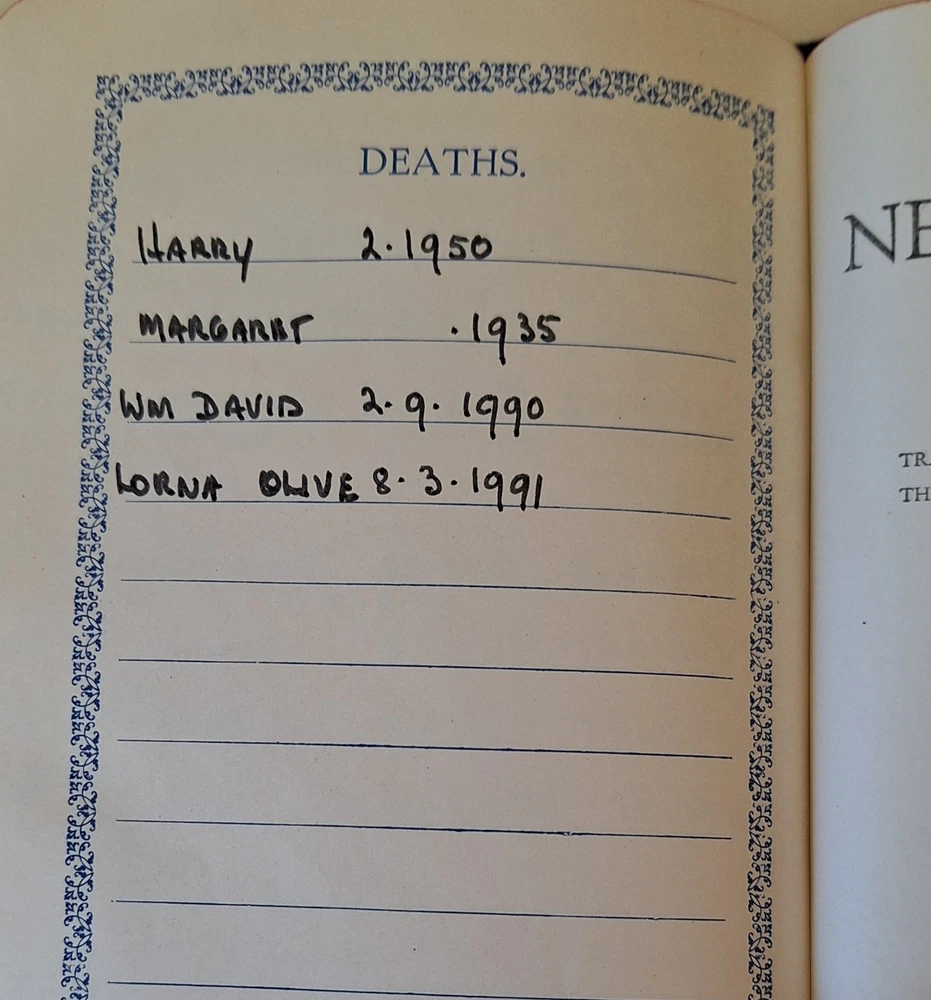 DEATHS.
HARRY 2.1950
MARGARET .1935
WM DAVID 2.9.1990
LORNA OLIVE 8.3.1991
NE
TR
TH